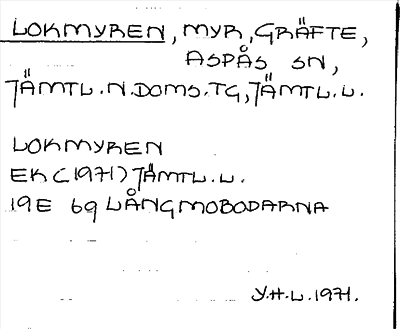 LOKMYREN, MYR, GRÄFTE,
ASPÅS SN,
JÄMTL.N.DOMS.TG, JÄMTL.L.
LOKMYREN
EK (1971) JÄMTL.L.
19E 6g LÅNGMOBODARNA
Y.H.L.1971.